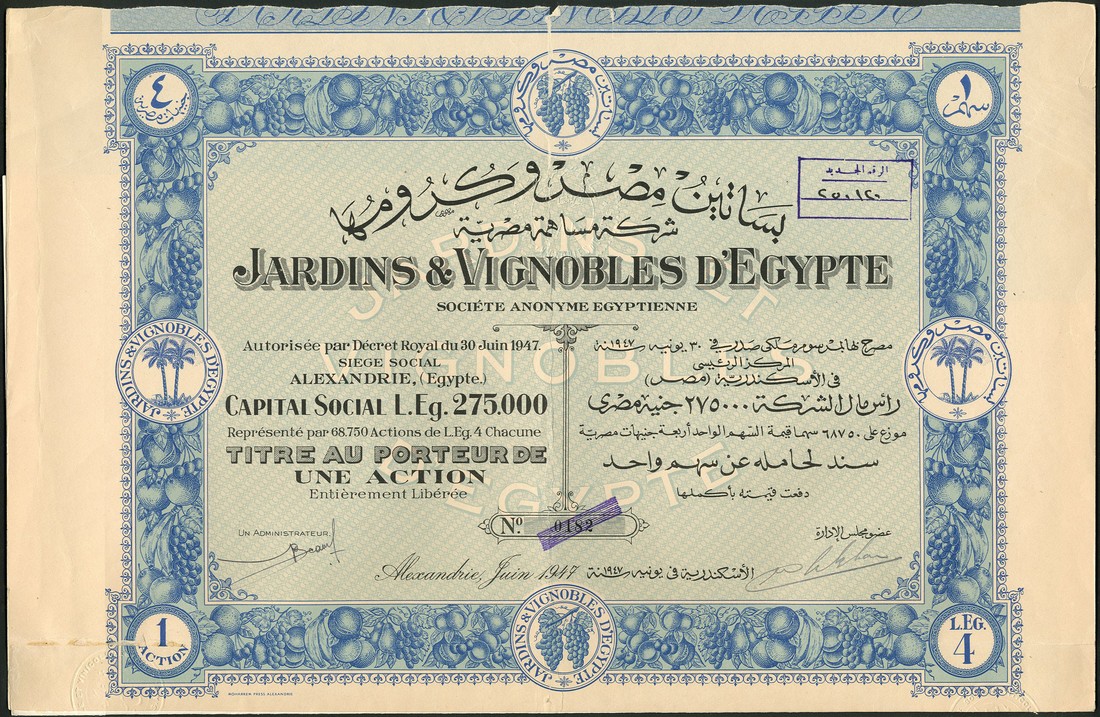 ٤
جنيهات مصرية
بساتين مصر وكرومها
١
سهم
الرقم الجديد
٢٥٠١٢٠
بساتين مصر وكرومها
شركة مساهمة مصرية
JARDINS & VIGNOBLES D'EGYPTE
SOCIÉTE ANONYME EGYPTIENNE
JARDINS ET
VIGNOBLES
D'EGYPTE
Autorisée par Décret Royal du 30 Juin 1947.
SIEGE SOCIAL
ALEXANDRIE, (Egypte.)
CAPITAL SOCIAL L.EG. 275.000
Représenté par 68.750 Actions de L.Eg. 4 Chacune
TITRE AU PORTEUR DE
UNE ACTION
Entièrement Libérée
مصرح بها بمرسوم ملكى صدر فى ٣٠ يونيه سنة ١٩٤٧
المركز الرئيسى
فى الأسكندرية (مصر)
رأس مال الشركة ٢٧٥٠٠٠ جنيه مصرى
موزع على ٦٨٧٥٠ سهما قيمة السهم الواحد أربعة جنيهات مصرية
سند لحامله عن سهم واحد
دفعت قيمته بأكملها
JARDINS & VIGNOBLES D'EGYPTE
بساتين مصر وكرومها
No. 0182
UN ADMINISTRATEUR.
عضو مجلس الإدارة
Alexandrie, Juin 1947
الأسكندرية فى يونيه سنة ١٩٤٧
1
ACTION
JARDINS & VIGNOBLES D'EGYPTE
L.EG.
4
MOHARREM PRESS ALEXANDRIE